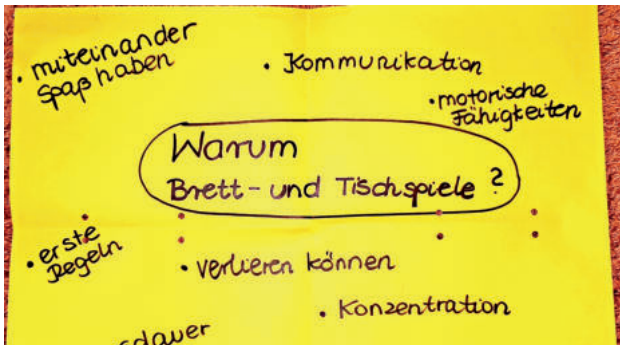 • miteinander
Spaß haben
• Kommunikation
• motorische
Fähigkeiten
Warum
Brett- und Tischspiele?
• erste
Regeln
• verlieren können
• Konzentration